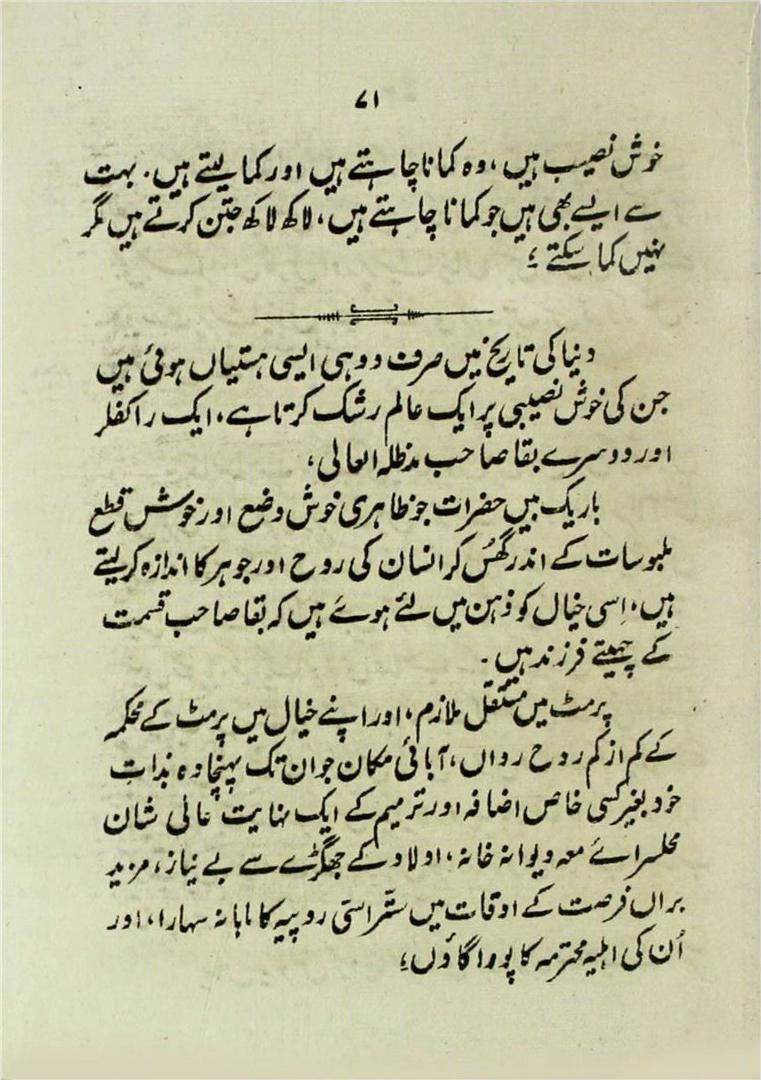 ۷۱
خوش نصیب ہیں، وہ کمانا چاہتے ہیں اور کما لیتے ہیں. بہت
سے ایسے بھی ہیں جو کمانا چاہتے ہیں، لاکھ لاکھ جتن کرتے ہیں مگر
نہیں کما سکتے ؛
دنیا کی تاریخ میں صرف دو ہی ایسی ہستیاں ہوئی ہیں
جن کی خوش نصیبی پر ایک عالم رشک کرتا ہے، ایک راکفلر
اور دوسرے بقا صاحب مدظلہ العالی،
باریک بیں حضرات جو ظاہری خوش وضع اور خوش قطع
ملبوسات کے اندر گھُس کر انسان کی روح اور جوہر کا اندازہ کر لیتے
ہیں، اِسی خیال کو ذہن میں لئے ہوئے ہیں کہ بقا صاحب قسمت
کے چہیتے فرزند ہیں۔
پرمٹ میں مستقل ملازم، اور اپنے خیال میں پرمٹ کے محکمہ
کے کم از کم روح رواں، آبائی مکان جو ان تک پہنچا وہ بذاتِ
خود بغیر کسی خاص اضافہ اور ترمیم کے ایک نہایت عالی شان
محلسرائے معہ دیوانہ خانہ، اولاد کے جھگڑے سے بے نیاز، مزید
براں فرصت کے اوقات میں ستّر اسّی روپیہ کا ماہانہ سہارا، اور
اُن کی اہلیہ محترمہ کا پورا گاؤں؛